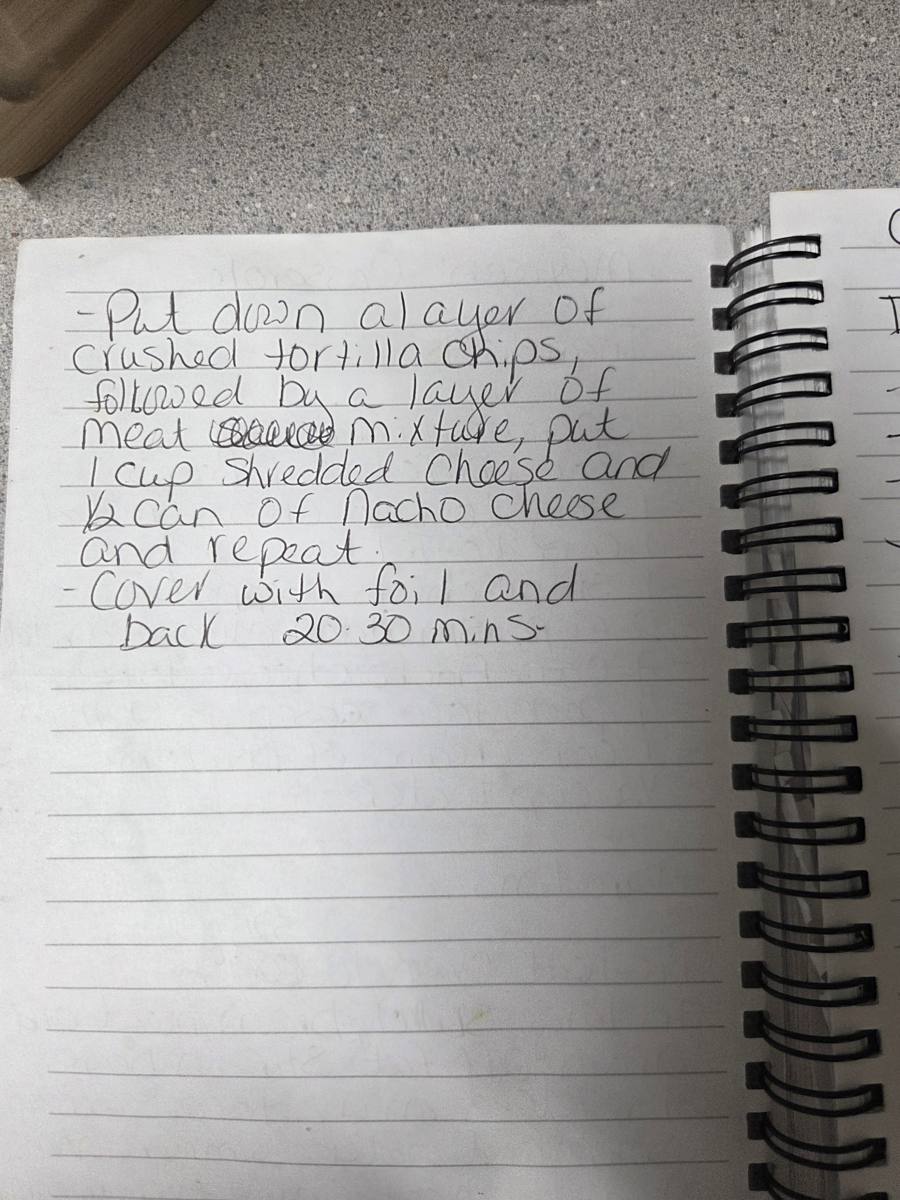 - Put down a layer of
crushed tortilla chips,
followed by a layer of
meat mixture, put
1 cup shredded cheese and
1/2 can of nacho cheese
and repeat.
- Cover with foil and
back 20-30 mins.